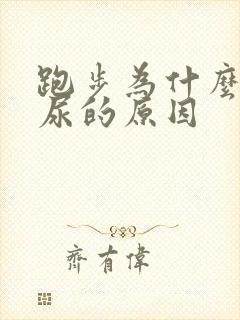 跑步為什麼
尿的原因
齊有偉